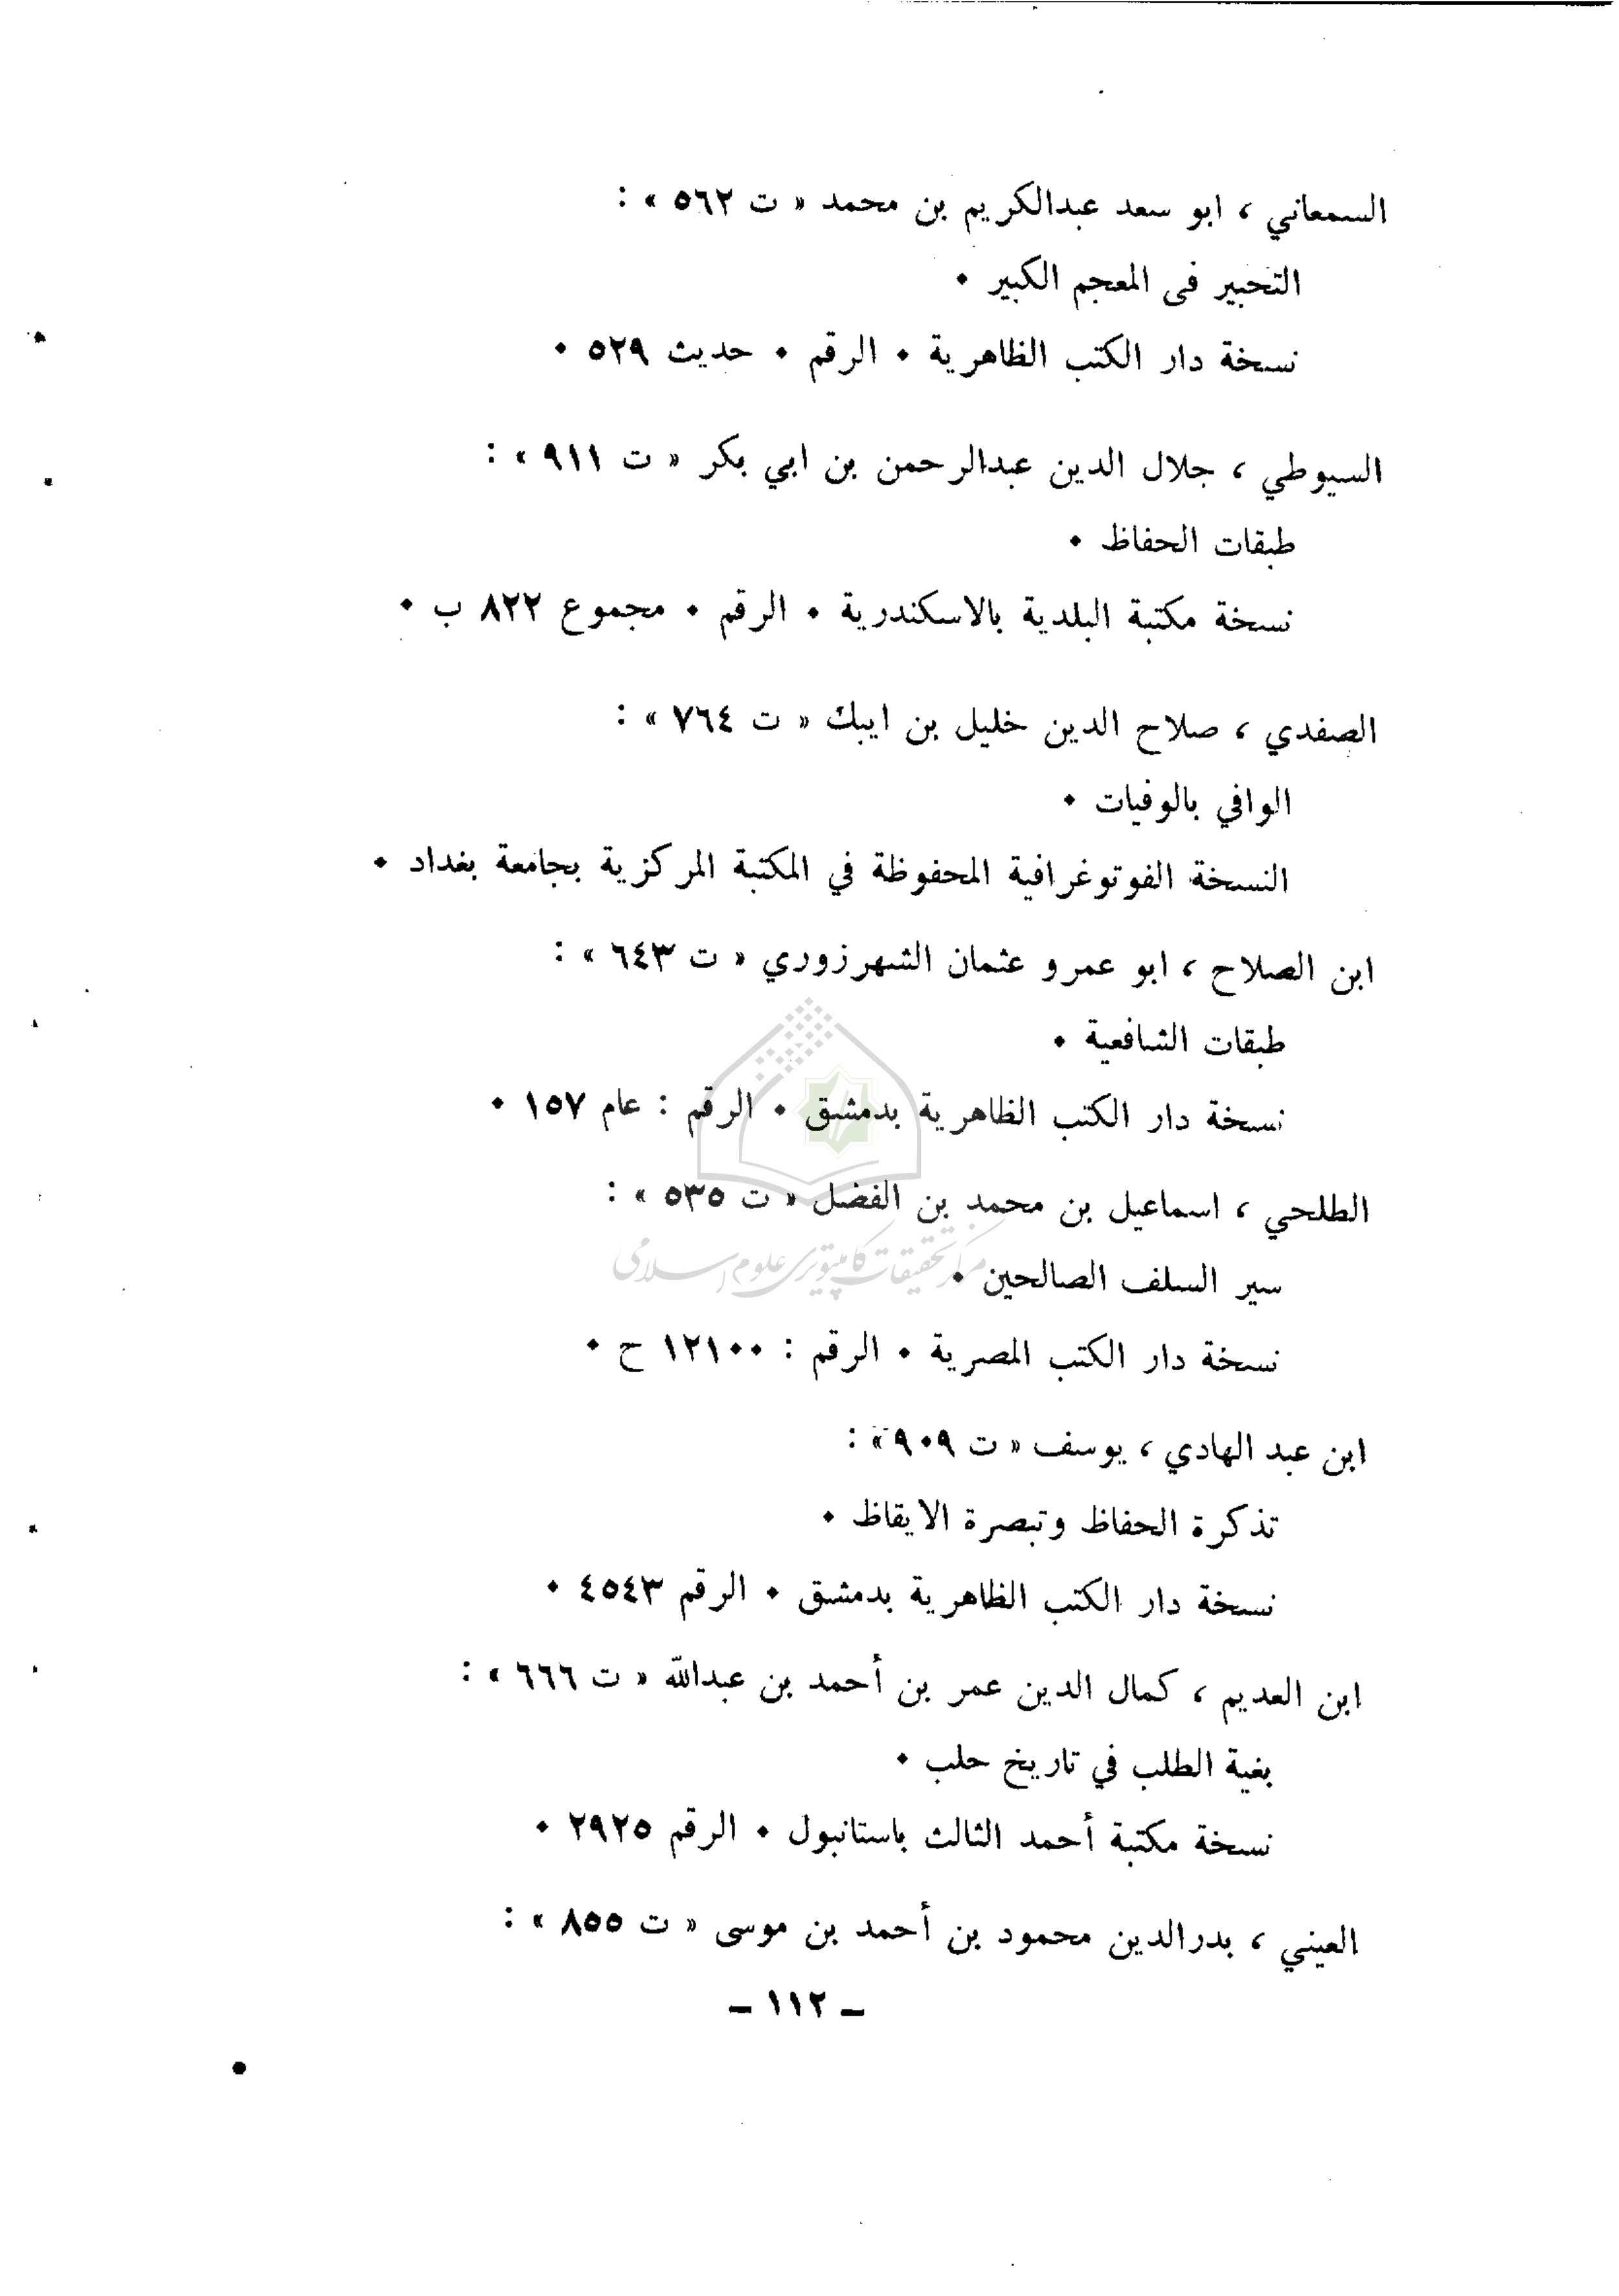 السمعاني ، ابو سعد عبدالكريم بن محمد « ت ٥٦٢ » :
التحبير فى المعجم الكبير ٠
نسخة دار الكتب الظاهرية ٠ الرقم ٠ حديث ٥٢٩ ٠
السيوطي ، جلال الدين عبدالرحمن بن ابي بكر « ت ٩١١ » :
طبقات الحفاظ ٠
نسخة مكتبة البلدية بالاسكندرية ٠ الرقم ٠ مجموع ٨٢٢ ب ٠
الصفدي ، صلاح الدين خليل بن ايبك « ت ٧٦٤ » :
الوافي بالوفيات ٠
النسخة الفوتوغرافية المحفوظة في المكتبة المركزية بجامعة بغداد ٠
ابن الصلاح ، ابو عمرو عثمان الشهرزوري « ت ٦٤٣ » :
طبقات الشافعية ٠
نسخة دار الكتب الظاهرية بدمشق ٠ الرقم : عام ١٥٧ ٠
الطلحي ، اسماعيل بن محمد بن الفضل « ت ٥٣٥ » :
مركز تحقيقات كامپيوتري علوم اسلامى
سير السلف الصالحين ٠
نسخة دار الكتب المصرية ٠ الرقم : ١٢١٠٠ ح ٠
ابن عبد الهادي ، يوسف « ت ٩٠٩ » :
تذكرة الحفاظ وتبصرة الايقاظ ٠
نسخة دار الكتب الظاهرية بدمشق ٠ الرقم ٤٥٤٣ ٠
ابن العديم ، كمال الدين عمر بن أحمد بن عبدالله « ت ٦٦٦ » :
بغية الطلب في تاريخ حلب ٠
نسخة مكتبة أحمد الثالث باستانبول ٠ الرقم ٢٩٢٥ ٠
العيني ، بدرالدين محمود بن أحمد بن موسى « ت ٨٥٥ » :
– ١١٢ –